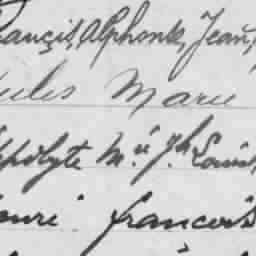 françis, Alphonse, Jean,
Jules Marie
ppolyte M.ie J.h Louis,
enri françois